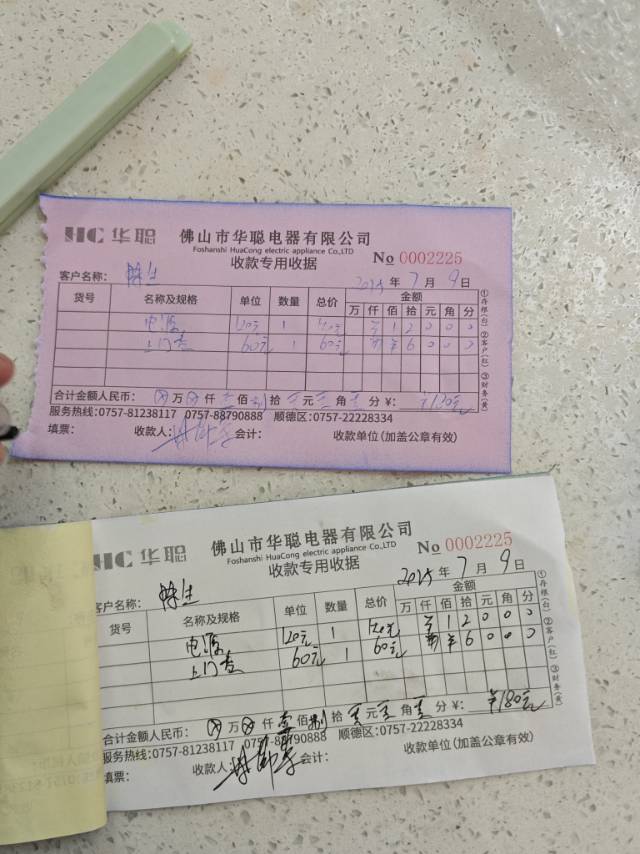 HC 华聪 佛山市华聪电器有限公司
Foshanshi HuaCong electric appliance Co.,LTD
收款专用收据 No 0002225
客户名称： 陈生 2025 年 7 月 9 日
货号 名称及规格 单位 数量 总价 金额
万 仟 佰 拾 元 角 分
电源 120元 1 120元 ¥ 1 2 0 0 0
上门费 60元 1 60元 ¥ 6 0 0 0
合计金额人民币： ⊗ 万 ⊗ 仟 壹 佰 捌 拾 零 元 零 角 零 分 ¥: ¥180元
服务热线:0757-81238117 0757-88790888 顺德区:0757-22228334
填票： 收款人： 会计： 收款单位(加盖公章有效)
①存根(白) ②客户(红) ③财务(黄)
HC 华聪 佛山市华聪电器有限公司
Foshanshi HuaCong electric appliance Co.,LTD
收款专用收据 No 0002225
客户名称： 陈生 2025 年 7 月 9 日
货号 名称及规格 单位 数量 总价 金额
万 仟 佰 拾 元 角 分
电源 120元 1 120元 ¥ 1 2 0 0 0
上门费 60元 1 60元 ¥ 6 0 0 0
合计金额人民币： ⊗ 万 ⊗ 仟 壹 佰 捌 拾 零 元 零 角 零 分 ¥: ¥180元
服务热线:0757-81238117 0757-88790888 顺德区:0757-22228334
填票： 收款人： 会计： 收款单位(加盖公章有效)
①存根(白) ②客户(红) ③财务(黄)